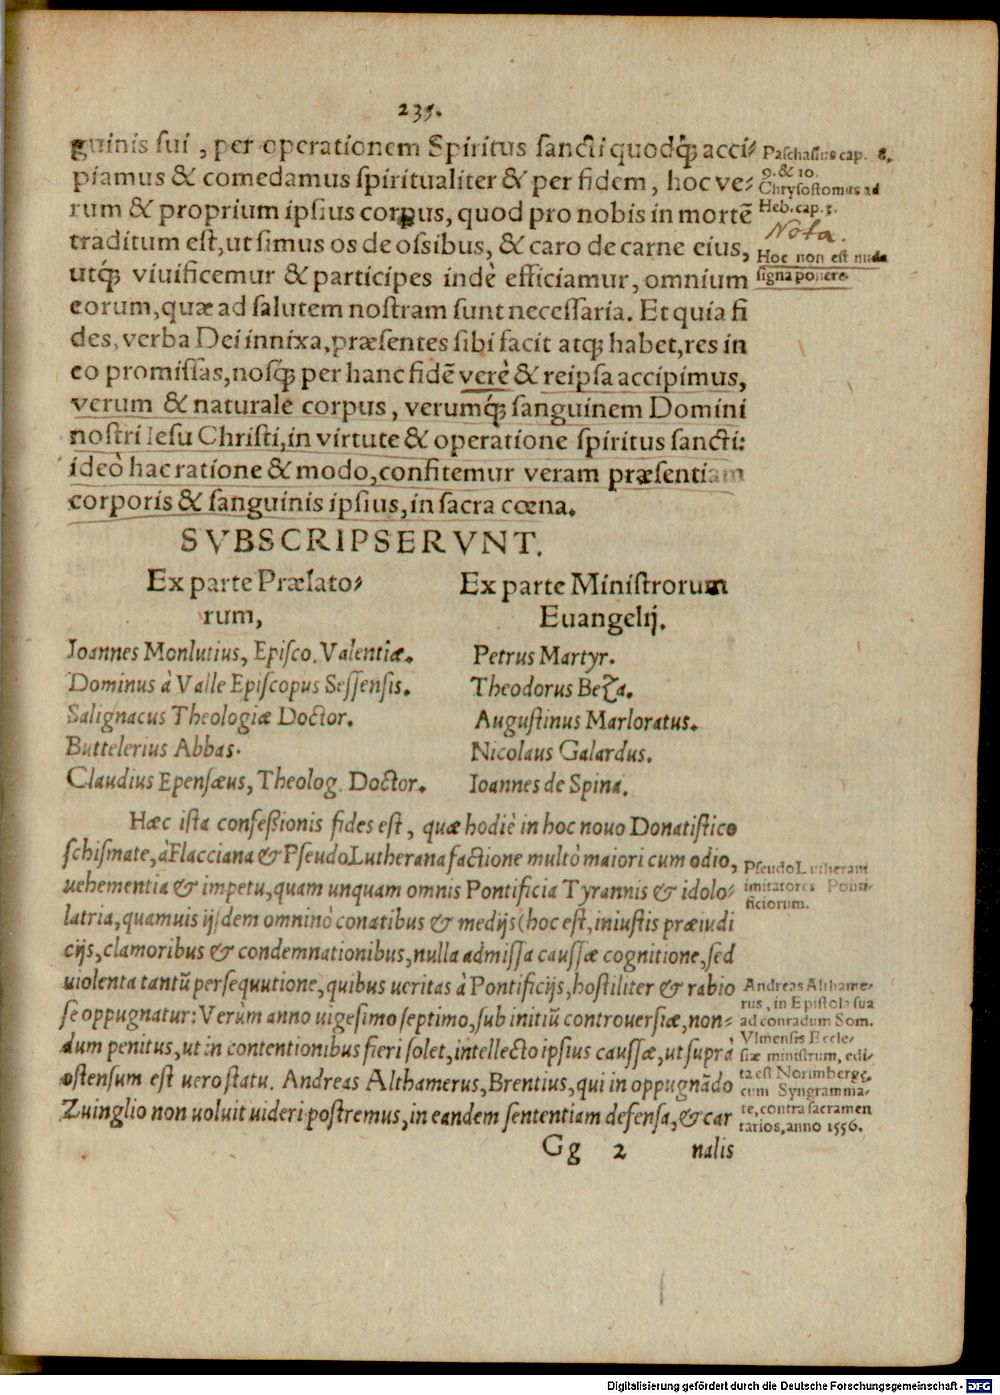 235.
guinis sui, per operationem Spiritus sancti quodq́; acci-
piamus & comedamus spiritualiter & per fidem, hoc ve-
rum & proprium ipsius corpus, quod pro nobis in mortē
traditum est, ut simus os de ossibus, & caro de carne eius,
utq́; viuificemur & participes indè efficiamur, omnium
eorum, quæ ad salutem nostram sunt necessaria. Et quia fi
des, verba Dei innixa, præsentes sibi facit atq; habet, res in
eo promissas, nosq́; per hanc fidē verè & reipsa accipimus,
verum & naturale corpus, verumq́; sanguinem Domini
nostri Iesu Christi, in virtute & operatione spiritus sancti:
ideò hac ratione & modo, confitemur veram præsentiam
corporis & sanguinis ipsius, in sacra cœna.
Paschasius cap. 8.
9. & 10.
Chrysostomus ad
Heb. cap. 3.
Nota.
Hoc non est nuda
signa ponere.
SVBSCRIPSERVNT.
Ex parte Prælato-
rum,
Ioannes Monlutius, Episco. Valentiæ.
Dominus à Valle Episcopus Sessensis.
Salignacus Theologiæ Doctor.
Buttelerius Abbas.
Claudius Epensæus, Theolog. Doctor.
Ex parte Ministrorum
Euangelij.
Petrus Martyr.
Theodorus Beza.
Augustinus Marloratus.
Nicolaus Galardus.
Ioannes de Spina.
Hæc ista confeßionis fides est, quæ hodiè in hoc nouo Donatistico
schismate, à Flacciana & PseudoLutherana factione multò maiori cum odio,
uehementia & impetu, quam unquam omnis Pontificia Tyrannis & idolo-
latria, quamuis ijsdem omninò conatibus & medijs (hoc est, iniustis præiudi
cijs, clamoribus & condemnationibus, nulla admissa caussæ cognitione, sed
uiolenta tantū persequutione, quibus ueritas à Pontificijs, hostiliter & rabio
se oppugnatur: Verùm anno uigesimo septimo, sub initiū controuersiæ, non-
dum penitus, ut in contentionibus fieri solet, intellecto ipsius caussæ, ut suprà
ostensum est uero statu. Andreas Althamerus, Brentius, qui in oppugnādo
Zuinglio non uoluit uideri postremus, in eandem sententiam defensa, & car
PseudoLutherani
imitatores Ponti-
ficiorum.
Andreas Althame-
rus, in Epistola sua
ad conradum Som.
Vlmensis Eccle-
siæ ministrum, edi-
ta est Norimbergę
cum Syngramma-
te, contra sacramen
tarios, anno 1556.
Gg 2 nalis
Digitalisierung gefördert durch die Deutsche Forschungsgemeinschaft - DFG